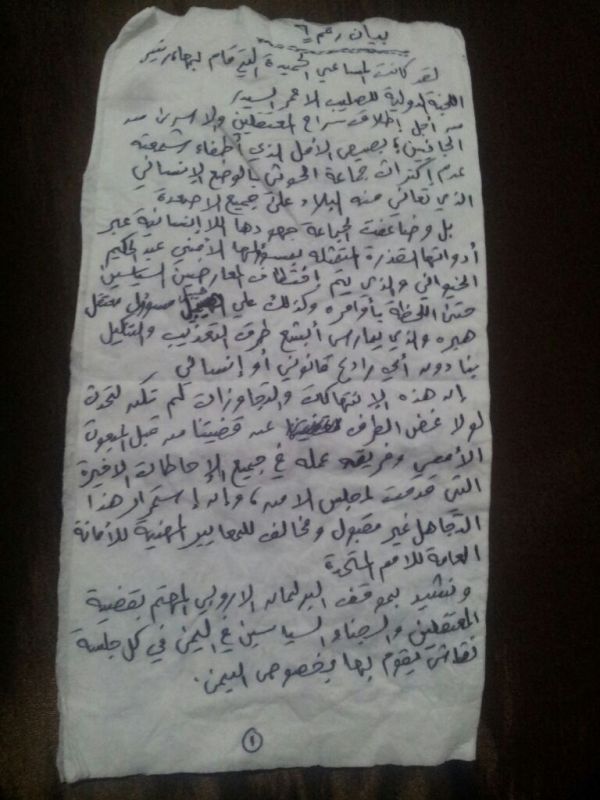 بيان رقم ٦
لقد كانت المساعي الحميدة التي قام بها
اللجنة الدولية للصليب الاحمر السيد/
من أجل إطلاق سراح المعتقلين والاسرى من
الجانبين، بصيص الأمل الذي أطفاء شمعته
عدم اكتراث جماعة الحوثي بالوضع الإنساني
الذي تعاني منه البلاد على جميع الاصعدة
بل وضاعفت الجماعة جهودها اللاإنسانية عبر
أدواتها القذرة المتمثلة بمسؤولها الأمني عبدالحكيم
الخيواني والذي يتم إختطاف المعارضين السياسين
حتى اللحظة بأوامره وكذلك علي مسؤول معتقل
هبره والذي يمارس أبشع طرق التعذيب والتنكيل
بنا دون أي رادع قانوني أو إنساني
إن هذه الإنتهاكات والتجاوزات لم تكن لتحدث
لولا غض الطرف عن قضيتنا من قبل المبعوث
الأممي وفريق عمله في جميع الإحاطات الاخيرة
التي قدمت لمجلس الامن، وإن إستمرار هذا
التجاهل غير مقبول ومخالف للمعايير المهنية للأمانة
العامة للامم المتحدة
ونشيد بموقف البرلمان الاروبي المهتم بقضية
المعتقلين والسجناء السياسين في اليمن في كل جلسة
نقاش يقوم بها بخصوص اليمن.
١